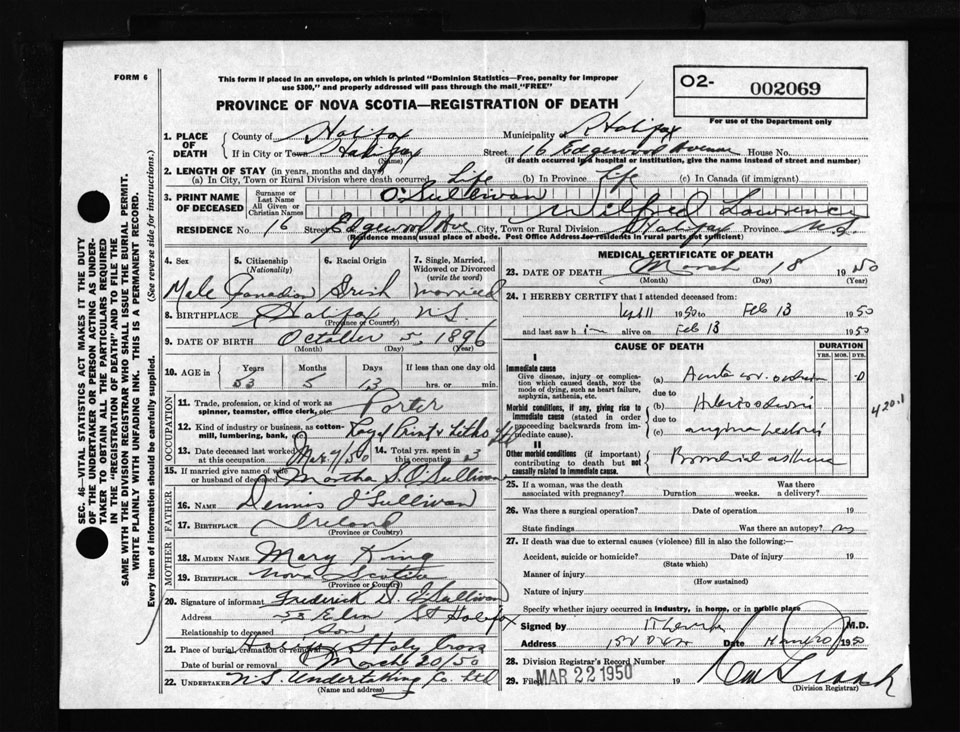 FORM 6
This form if placed in an envelope, on which is printed "Dominion Statistics—Free, penalty for improper
use $300," and properly addressed will pass through the mail "FREE"
O2- 002069
For use of the Department only
PROVINCE OF NOVA SCOTIA—REGISTRATION OF DEATH
1. PLACE OF DEATH { County of Halifax Municipality of Halifax
If in City or Town Halifax (Name) Street 16 Edgewood Avenue House No.
(If death occurred in a hospital or institution, give the name instead of street and number)
2. LENGTH OF STAY (in years, months and days)
(a) In City, Town or Rural Division where death occurred Life (b) In Province Life (c) In Canada (if immigrant)
3. PRINT NAME OF DECEASED { Surname or Last Name O'Sullivan
All Given or Christian Names Wilfred Lawrence
RESIDENCE No. 16 Street Edgewood Ave City, Town or Rural Division Halifax Province N.S.
(Residence means usual place of abode. Post Office Address for residents in rural parts not sufficient)
4. Sex Male
5. Citizenship (Nationality) Canadian
6. Racial Origin Irish
7. Single, Married, Widowed or Divorced (write the word) married
8. BIRTHPLACE Halifax N.S.
(Province or Country)
9. DATE OF BIRTH October 5, 1896
(Month) (Day) (Year)
10. AGE in { Years Months Days If less than one day
53 5 13 hrs. or min.
OCCUPATION
11. Trade, profession, or kind of work as spinner, teamster, office clerk, etc. Porter
12. Kind of industry or business, as cotton-mill, lumbering, bank, etc. Print & Litho Ltd
13. Date deceased last worked at this occupation Mar 1/50
14. Total yrs. spent in this occupation 3
15. If married give name of wife or husband of deceased Martha S. O'Sullivan
FATHER
16. NAME Dennis O'Sullivan
17. BIRTHPLACE Ireland
(Province or Country)
MOTHER
18. MAIDEN NAME Mary King
19. BIRTHPLACE Nova Scotia
(Province or Country)
20. Signature of informant Frederick D. O'Sullivan
Address 53 Elm St Halifax
Relationship to deceased Son
21. Place of burial, cremation or removal Holy Cross
Date of burial or removal March 20/50
22. UNDERTAKER N.S. Undertaking Co. Ltd
(Name and address)
MEDICAL CERTIFICATE OF DEATH
23. DATE OF DEATH March 18 1950
(Month) (Day) (Year)
24. I HEREBY CERTIFY that I attended deceased from:
Sept 11 1950 to Feb 13 1950
and last saw him alive on Feb 13 1950
CAUSE OF DEATH
DURATION
YRS. MOS. DYS.
I
Immediate cause
Give disease, injury or complication which caused death, NOT the mode of dying, such as heart failure, asphyxia, asthenia, etc.
(a) Acute
due to
Morbid conditions, if any, giving rise to immediate cause (stated in order proceeding backwards from immediate cause).
(b)
due to
(c) angina pectoris
420.1
II
Other morbid conditions (if important) contributing to death but not causally related to immediate cause.
Bronchial asthma
25. If a woman, was the death associated with pregnancy? Duration weeks. Was there a delivery?
26. Was there a surgical operation? Date of operation 19
State findings Was there an autopsy? no
27. If death was due to external causes (violence) fill in also the following:—
Accident, suicide or homicide? Date of injury 19
(State which)
Manner of injury
(How sustained)
Nature of injury
Specify whether injury occurred in industry, in home, or in public place
Signed by M.D.
Address Date 1950
28. Division Registrar's Record Number
29. Filed MAR 22 1950 19
(Division Registrar)
SEC. 46—VITAL STATISTICS ACT MAKES IT THE DUTY
OF THE UNDERTAKER OR PERSON ACTING AS UNDER-
TAKER TO OBTAIN ALL THE PARTICULARS REQUIRED
IN THE "REGISTRATION OF DEATH" AND TO FILE THE
SAME WITH THE DIVISION REGISTRAR WHO SHALL ISSUE THE BURIAL PERMIT.
WRITE PLAINLY WITH UNFADING INK. THIS IS A PERMANENT RECORD.
Every item of information should be carefully supplied. (See reverse side for instructions.)